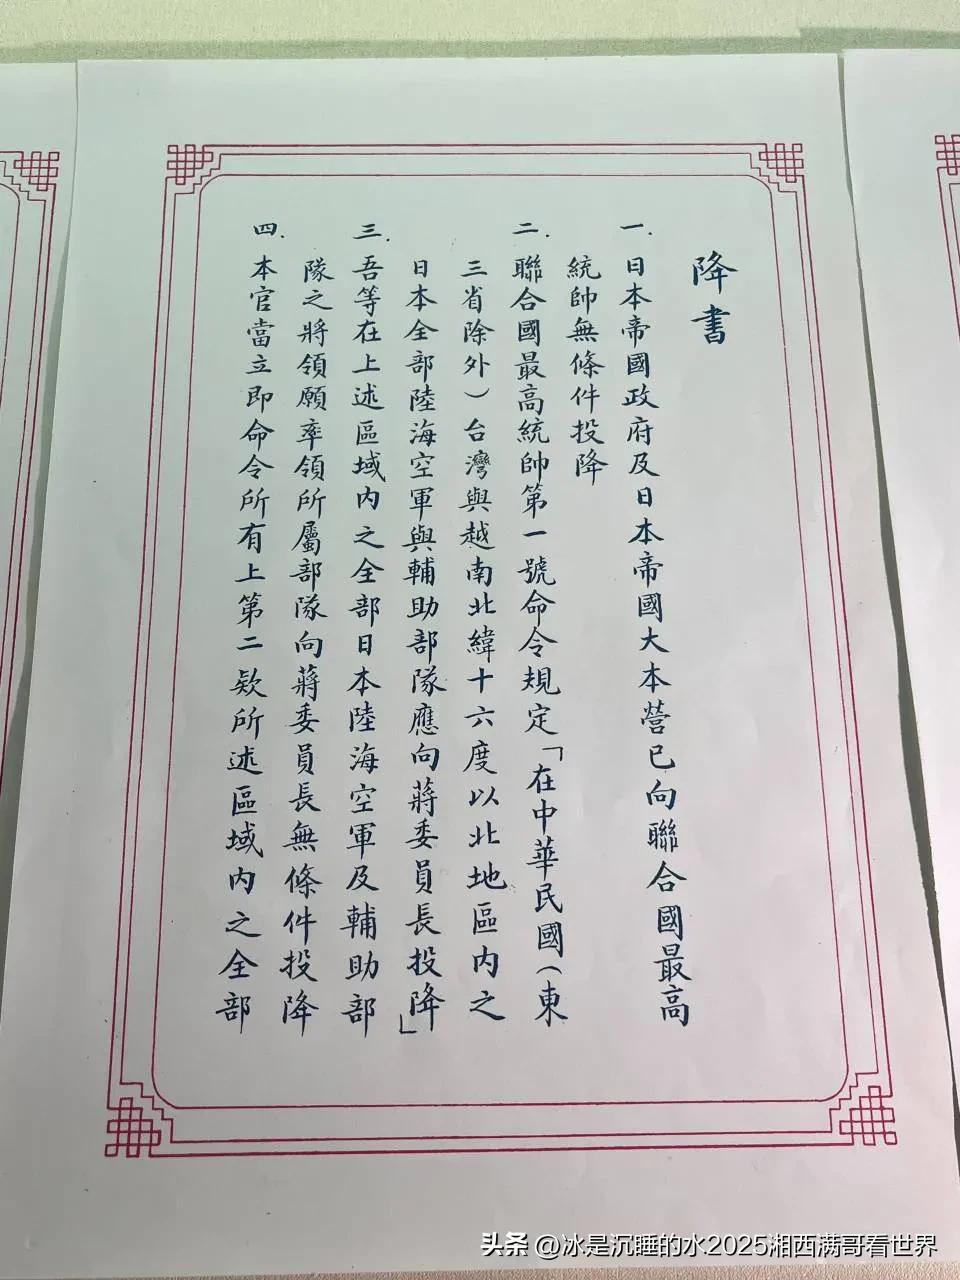 降書
一．日本帝國政府及日本帝國大本營已向聯合國最高
統帥無條件投降
二．聯合國最高統帥第一號命令規定「在中華民國（東
三省除外）台灣與越南北緯十六度以北地區內之
日本全部陸海空軍與輔助部隊應向蔣委員長投降」
三．吾等在上述區域內之全部日本陸海空軍及輔助部
隊之將領願率領所屬部隊向蔣委員長無條件投降
四．本官當立即命令所有上第二欵所述區域內之全部
头条 @冰是沉睡的水2025湘西满哥看世界